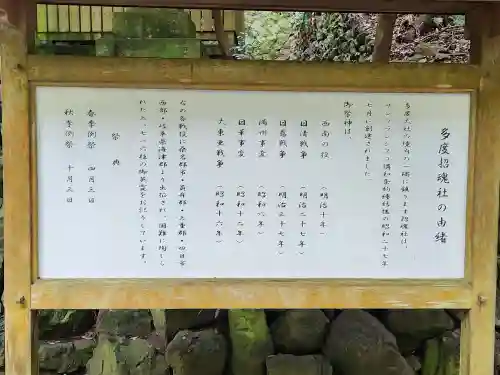 多度招魂社の由緒
多度大社の境内の一隅に鎮ります招魂社は、
サンフランシスコ講和条約締結後の昭和二十七年
七月に創建されました。
御祭神は、
西南の役　（明治十年）
日清戦争　（明治二十七年）
日露戦争　（明治三十七年）
満州事変　（昭和六年）
日華事変　（昭和十二年）
大東亜戦争　（昭和十六年）
右の各戦役に桑名郡市・員弁郡・三重郡・四日市
西部・岐阜県海津郡より出征され、国難に殉じら
れた三、七一六柱の御英霊をお祀りしています。
祭典
春季例祭　四月三日
秋季例祭　十月三日